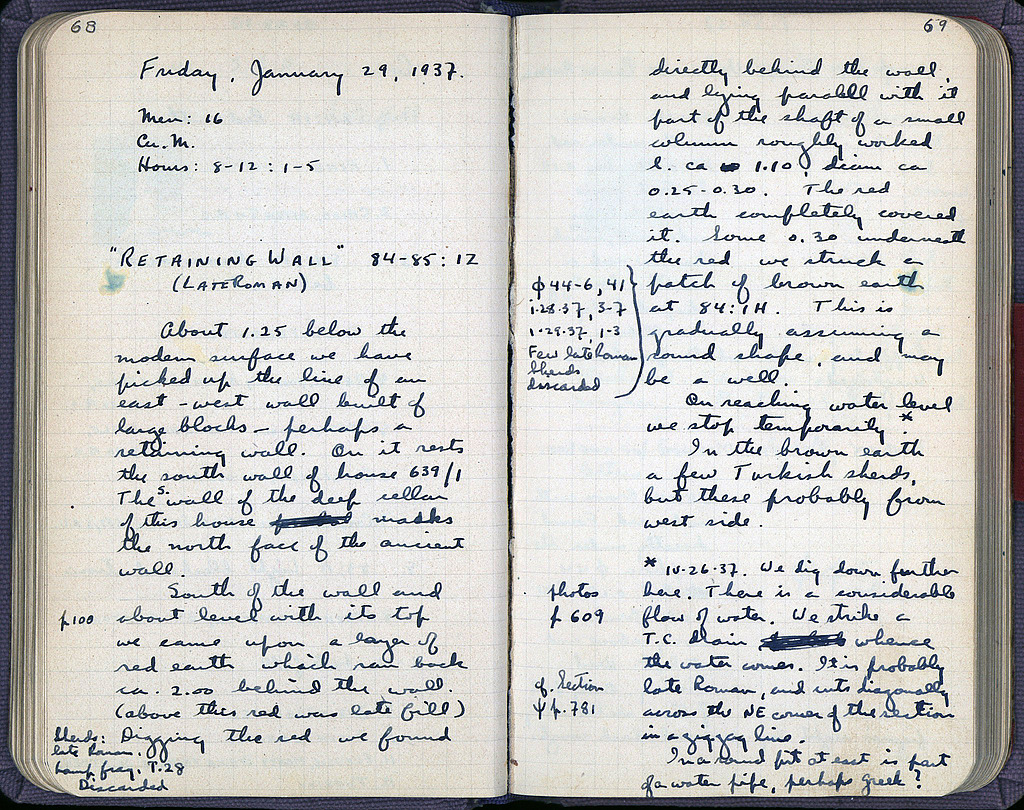 68
Friday, January 29, 1937.
Men: 16
Cu. M.
Hours: 8-12 : 1-5
"RETAINING WALL" 84-85 : 12
(LATE ROMAN)
About 1.25 below the
modern surface we have
picked up the line of an
east-west wall built of
large blocks – perhaps a
retaining wall. On it rests
the south wall of house 639/1
The S. wall of the deep cellar
of this house masks
the north face of the ancient
wall.
South of the wall and
p 100
about level with its top
we came upon a layer of
red earth which ran back
ca. 2.00 behind the wall.
(above this red was late fill)
Digging the red we found
Sherds:
late Roman.
lamp frag. T.28
Discarded
69
directly behind the wall,
and lying parallel with it
part of the shaft of a small
column roughly worked
l. ca 1.10, diam ca
0.25-0.30. The red
earth completely covered
it. Some 0.30 underneath
the red we struck a
patch of brown earth
at 84:1H. This is
gradually assuming a
round shape, and may
be a well.
ϕ 44-6, 41
1.28.37, 3-7
1.29.37, 1-3
Few late Roman
sherds
discarded
On reaching water level
we stop temporarily.*
In the brown earth
a few Turkish sherds,
but these probably from
west side.
* 26.37. We dig down further
here. There is a considerable
flow of water. We strike a
T.C. drain whence
the water comes. It is probably
late Roman, and cuts diagonally
across the NE corner of the section
in a zigzag line.
In a round pit at east is part
of a water pipe, perhaps Greek?
photos
p 609
cf. Section
Ψ p. 781